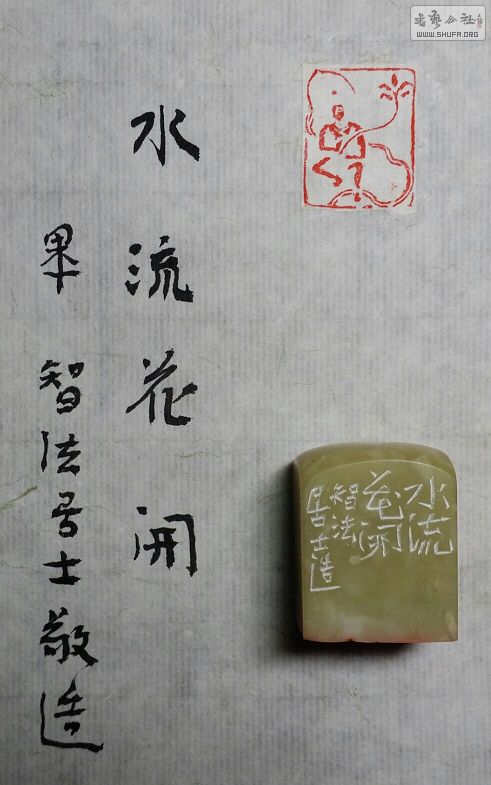 書藝公社
WWW.SHUFA.ORG
水流花開
畢 智法居士敬造
水流
花開
智法
居士造